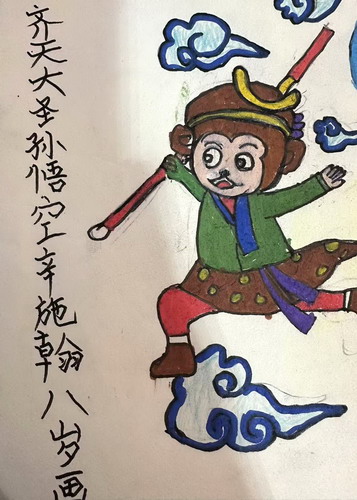 齐天大圣孙悟空辛施翰八岁画